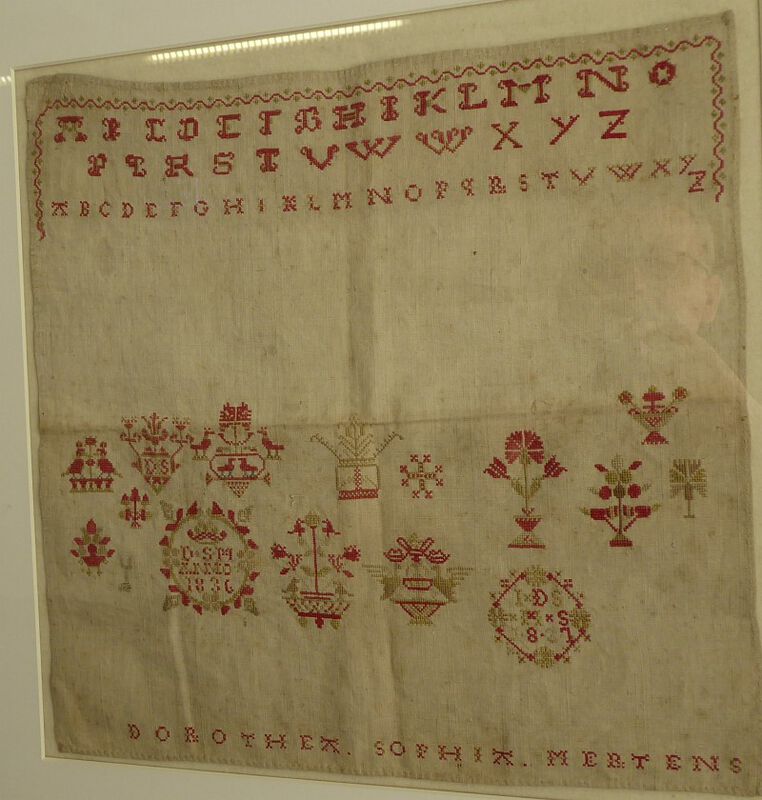 A B C D E F G H I K L M N O
P Q R S T V W W X Y Z
A B C D E F G H I K L M N O P Q R S T V W X Y
Z
D S
D·S M
ANNO
1836
D S
DOROTHEA. SOPHIA. MERTENS